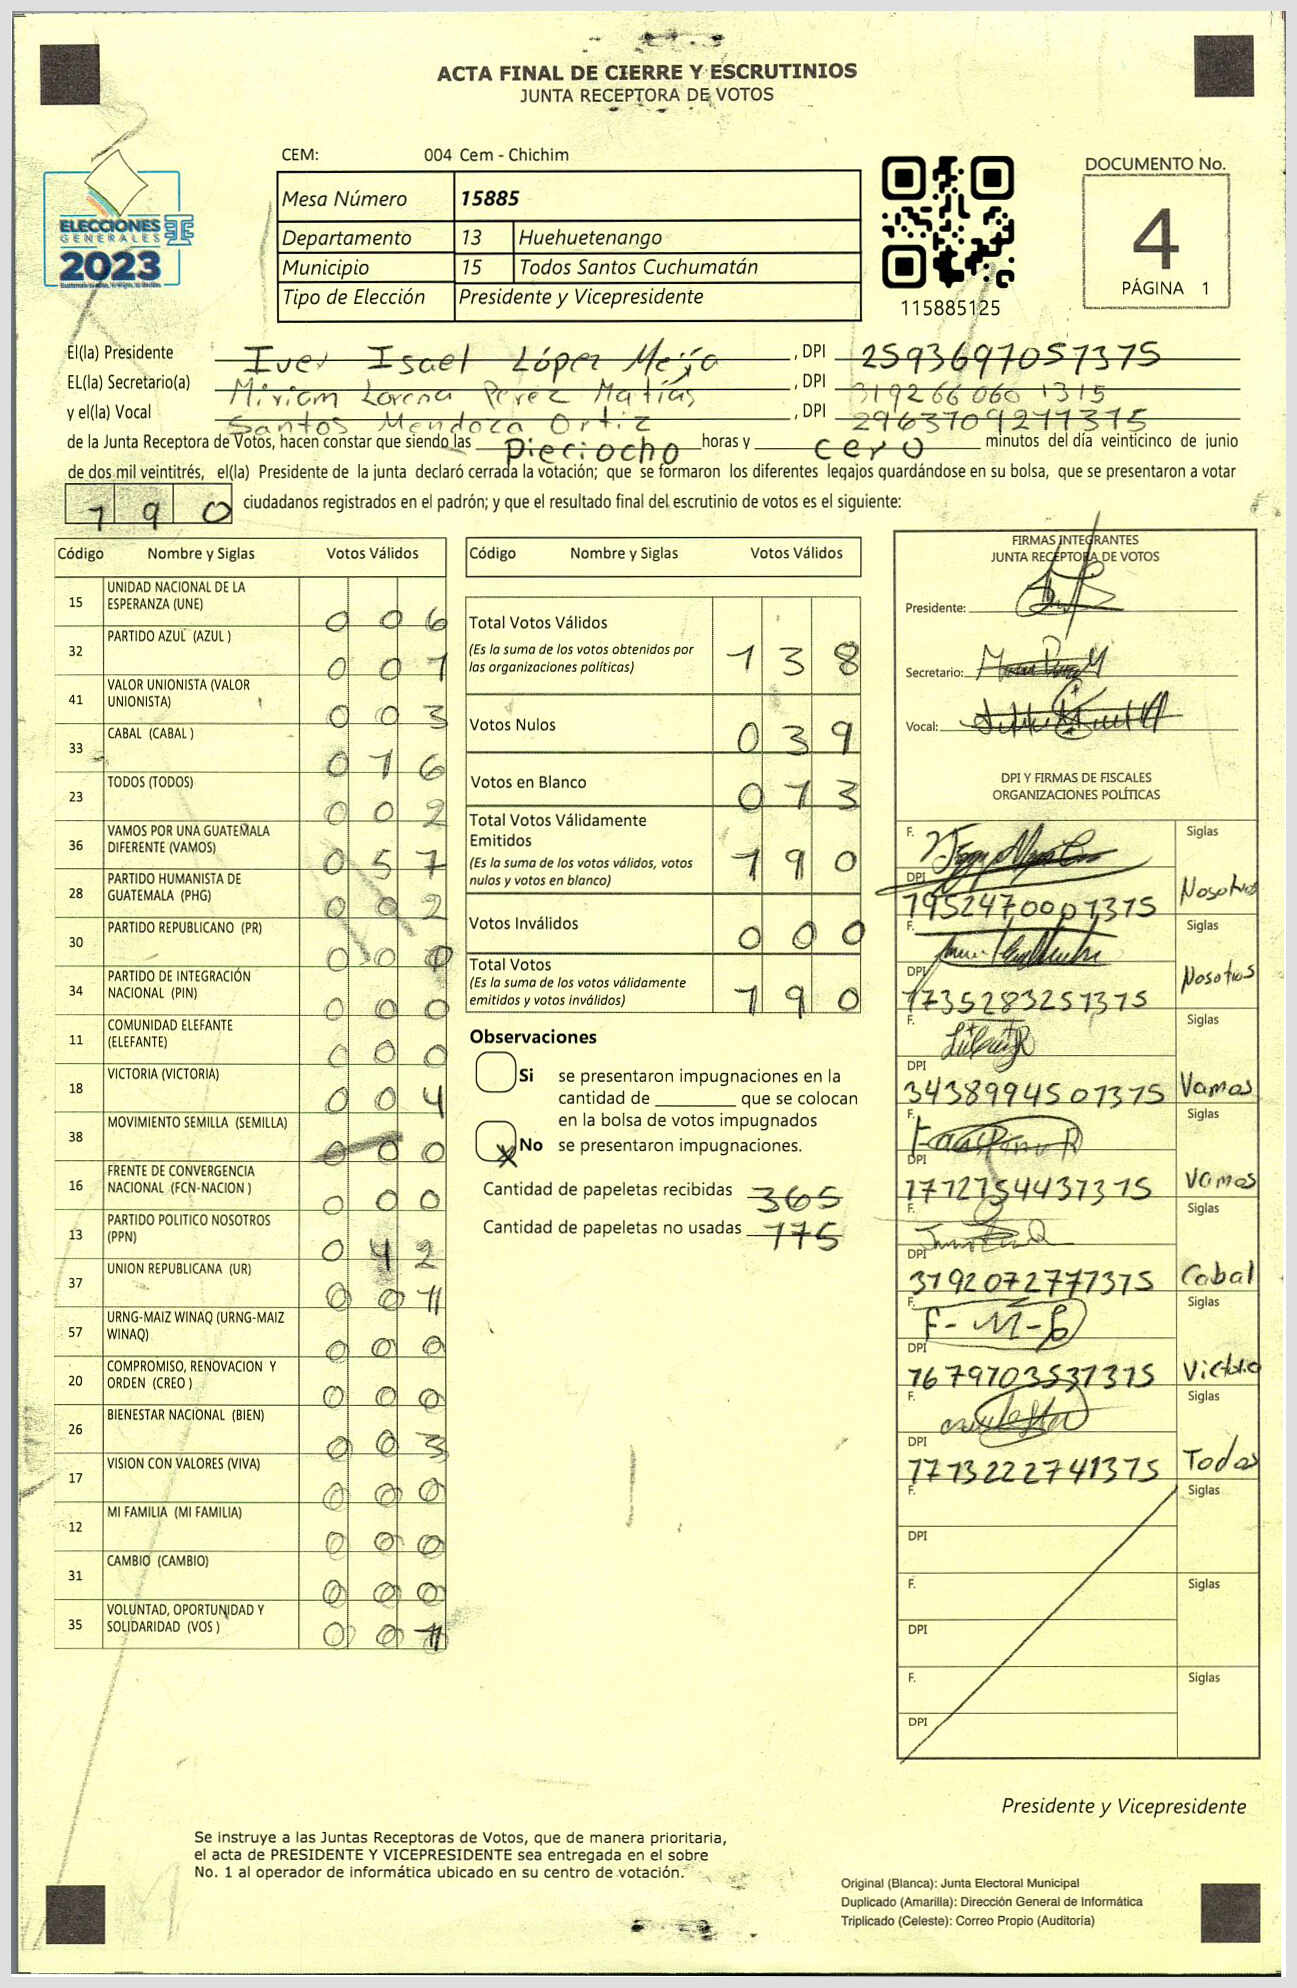 ACTA FINAL DE CIERRE Y ESCRUTINIOS
JUNTA RECEPTORA DE VOTOS
CEM: 004 Cem - Chichim
ELECCIONES
GENERALES
2023
Mesa Número 15885
Departamento 13 Huehuetenango
Municipio 15 Todos Santos Cuchumatán
Tipo de Elección Presidente y Vicepresidente
115885125
DOCUMENTO No.
4
PÁGINA 1
El(la) Presidente Iver Isael López Mejía, DPI 2593697051315
EL(la) Secretario(a) Miriam Lorena Perez Matías, DPI 319266060 1315
y el(la) Vocal Santos Mendoza Ortiz, DPI 2963709271315
de la Junta Receptora de Votos, hacen constar que siendo las Dieciocho horas y cero minutos del día veinticinco de junio
de dos mil veintitrés, el(la) Presidente de la junta declaró cerrada la votación; que se formaron los diferentes legajos guardándose en su bolsa, que se presentaron a votar
190 ciudadanos registrados en el padrón; y que el resultado final del escrutinio de votos es el siguiente:
Código Nombre y Siglas Votos Válidos
15 UNIDAD NACIONAL DE LA ESPERANZA (UNE) 0 0 6
32 PARTIDO AZUL (AZUL ) 0 0 1
41 VALOR UNIONISTA (VALOR UNIONISTA) 0 0 3
33 CABAL (CABAL ) 0 1 6
23 TODOS (TODOS) 0 0 2
36 VAMOS POR UNA GUATEMALA DIFERENTE (VAMOS) 0 5 7
28 PARTIDO HUMANISTA DE GUATEMALA (PHG) 0 0 2
30 PARTIDO REPUBLICANO (PR) 0 0
34 PARTIDO DE INTEGRACIÓN NACIONAL (PIN) 0 0 0
11 COMUNIDAD ELEFANTE (ELEFANTE) 0 0 0
18 VICTORIA (VICTORIA) 0 0 4
38 MOVIMIENTO SEMILLA (SEMILLA) 0 0 0
16 FRENTE DE CONVERGENCIA NACIONAL (FCN-NACION ) 0 0 0
13 PARTIDO POLITICO NOSOTROS (PPN) 0 4 2
37 UNION REPUBLICANA (UR) 0 0 1
57 URNG-MAIZ WINAQ (URNG-MAIZ WINAQ) 0 0 0
20 COMPROMISO, RENOVACION Y ORDEN (CREO ) 0 0 0
26 BIENESTAR NACIONAL (BIEN) 0 0 3
17 VISION CON VALORES (VIVA) 0 0 0
12 MI FAMILIA (MI FAMILIA) 0 0 0
31 CAMBIO (CAMBIO) 0 0 0
35 VOLUNTAD, OPORTUNIDAD Y SOLIDARIDAD (VOS ) 0 0 1
Código Nombre y Siglas Votos Válidos
Total Votos Válidos 1 3 8
(Es la suma de los votos obtenidos por
las organizaciones políticas)
Votos Nulos 0 3 9
Votos en Blanco 0 1 3
Total Votos Válidamente
Emitidos 1 9 0
(Es la suma de los votos válidos, votos
nulos y votos en blanco)
Votos Inválidos 0 0 0
Total Votos 1 9 0
(Es la suma de los votos válidamente
emitidos y votos inválidos)
Observaciones
Si se presentaron impugnaciones en la
cantidad de ________ que se colocan
en la bolsa de votos impugnados
X No se presentaron impugnaciones.
Cantidad de papeletas recibidas 365
Cantidad de papeletas no usadas 175
FIRMAS INTEGRANTES
JUNTA RECEPTORA DE VOTOS
Presidente:
Secretario:
Vocal:
DPI Y FIRMAS DE FISCALES
ORGANIZACIONES POLÍTICAS
F. Siglas
DPI 1952470001315 Nosotros
F. Siglas
DPI 1735283251315 Nosotros
F. Siglas
DPI 3438994501315 Vamos
F. Siglas
DPI 1712154431315 Vamos
F. Siglas
DPI 3192072771315 Cabal
F. F-M-P Siglas
DPI 1679103531315 Victoria
F. Siglas
DPI 1713222741315 Todos
F. Siglas
DPI
F. Siglas
DPI
F. Siglas
DPI
Presidente y Vicepresidente
Se instruye a las Juntas Receptoras de Votos, que de manera prioritaria,
el acta de PRESIDENTE Y VICEPRESIDENTE sea entregada en el sobre
No. 1 al operador de informática ubicado en su centro de votación.
Original (Blanca): Junta Electoral Municipal
Duplicado (Amarilla): Dirección General de Informática
Triplicado (Celeste): Correo Propio (Auditoría)